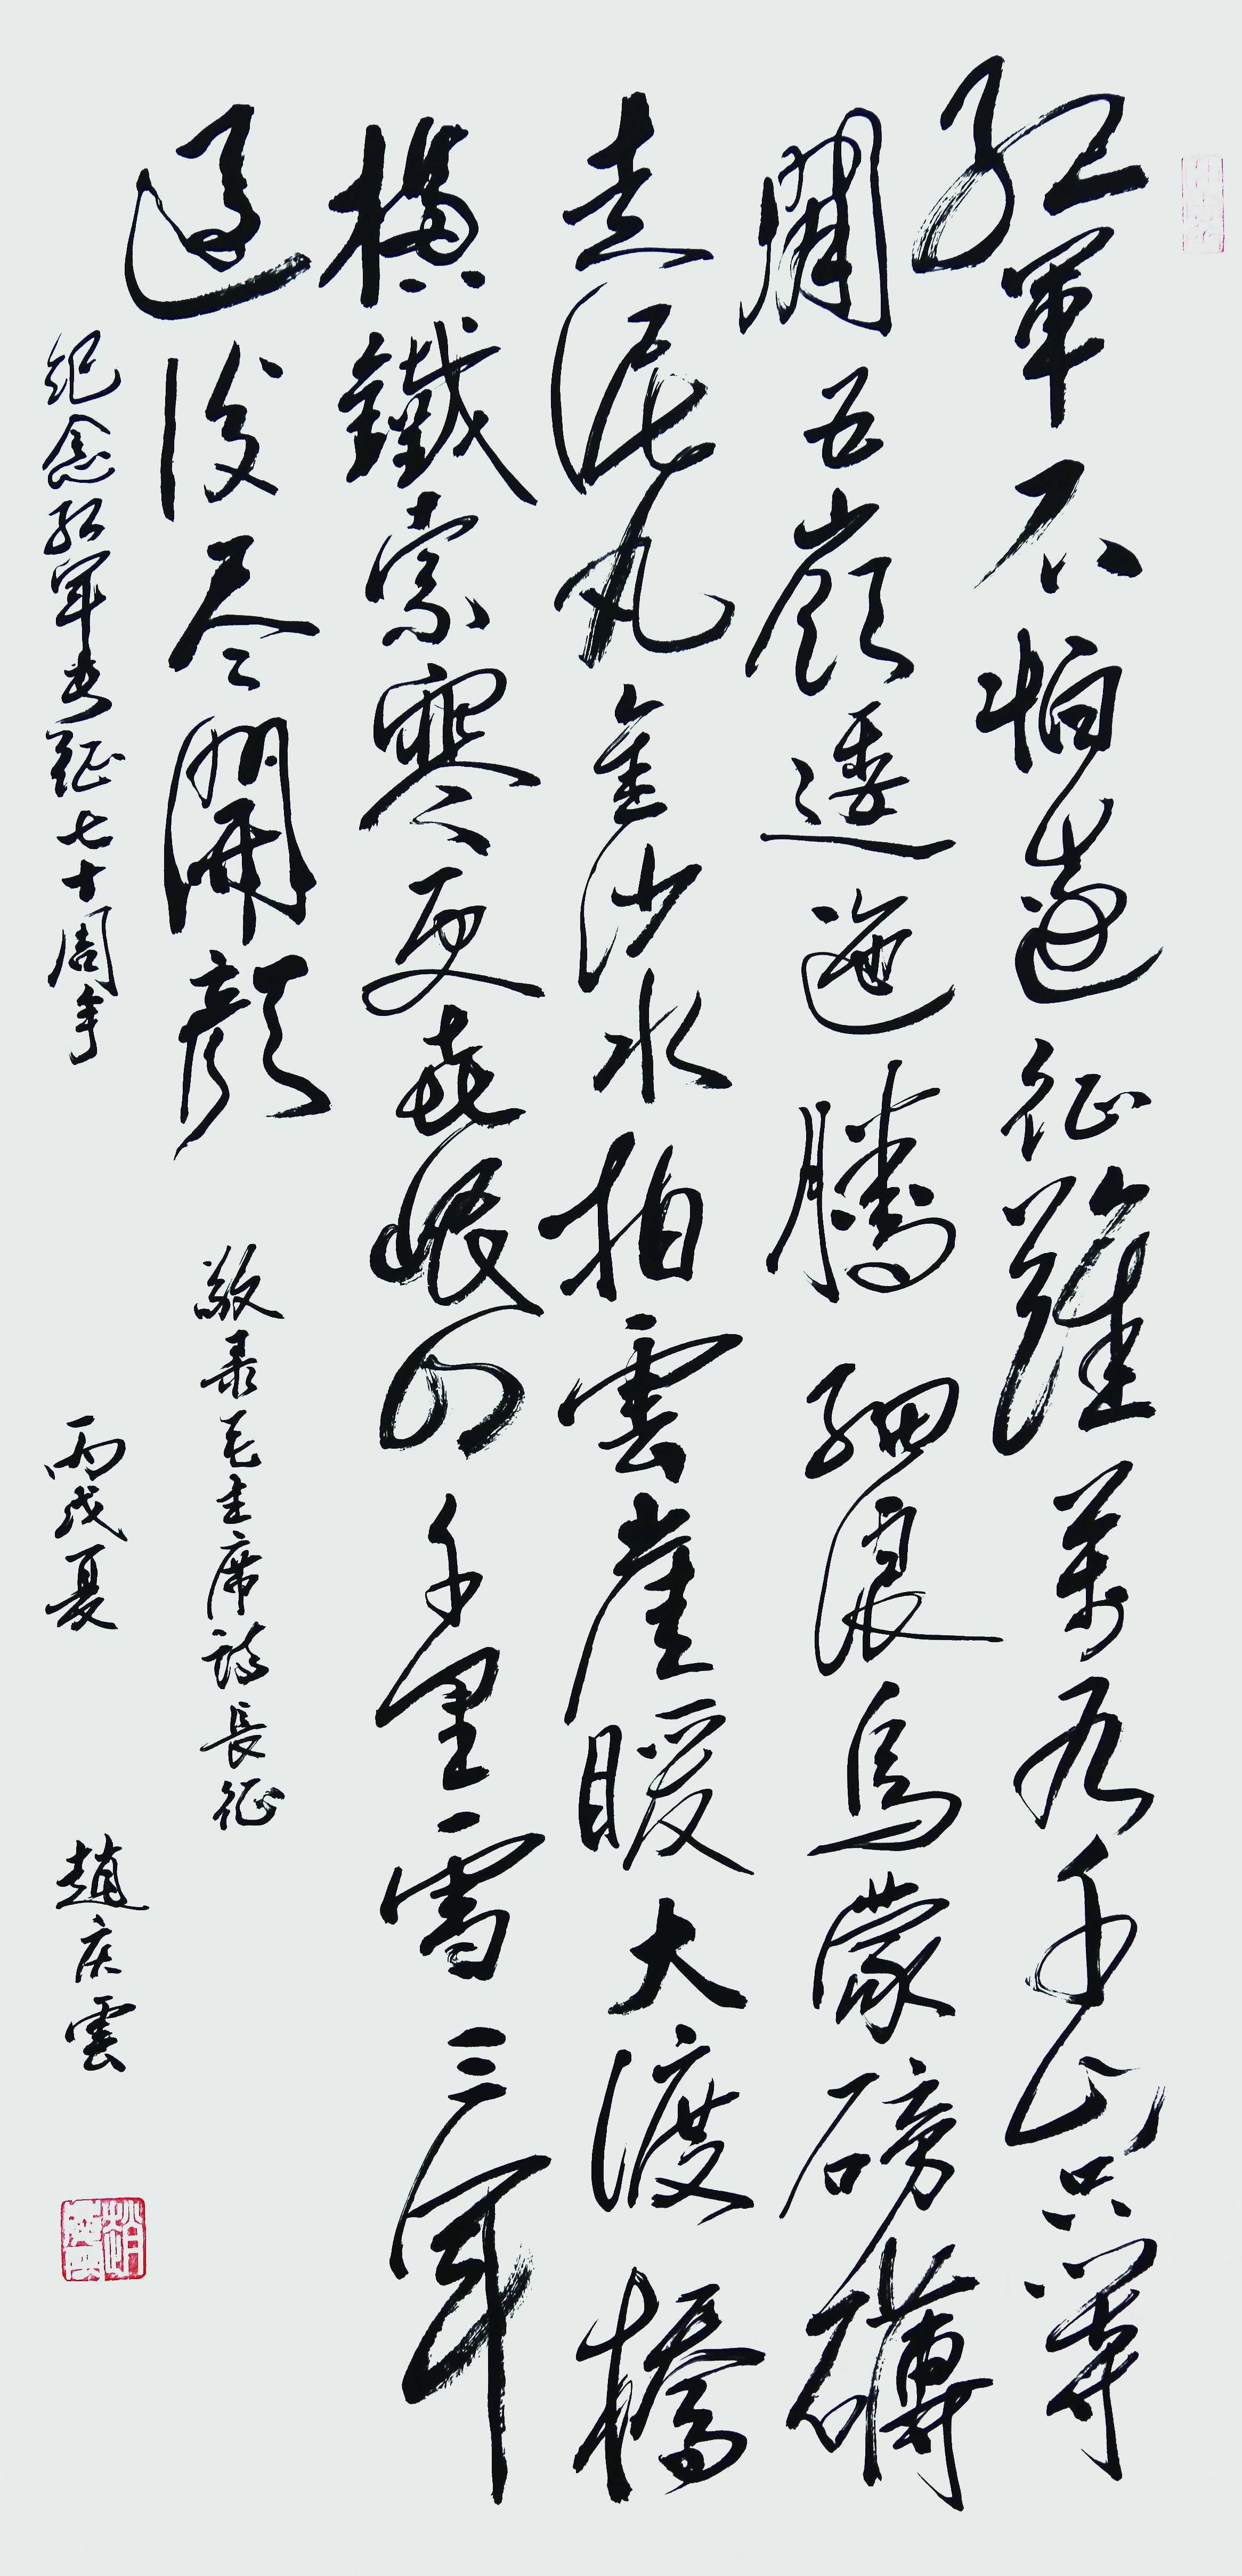 紅軍不怕遠征難萬水千山只等
閑五嶺逶迤騰細浪烏蒙磅礴
走泥丸金沙水拍雲崖暖大渡橋
橫鐵索寒更喜岷山千里雪三軍
過後尽開顏
敬录毛主席詩長征
紀念紅軍長征七十周年 丙戌夏 趙庆雲